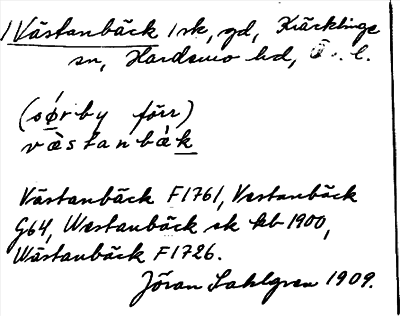 Västanbäck 1 sk, gd, Kräcklinge
sn, Hardemo hd, l.
(sǿrby förr)
västanbäk
Västanbäck F1761, Vestanbäck
G64, Westanbäck sk kb 1900,
Wästanbäck F1726.
Jöran Sahlgren 1909.